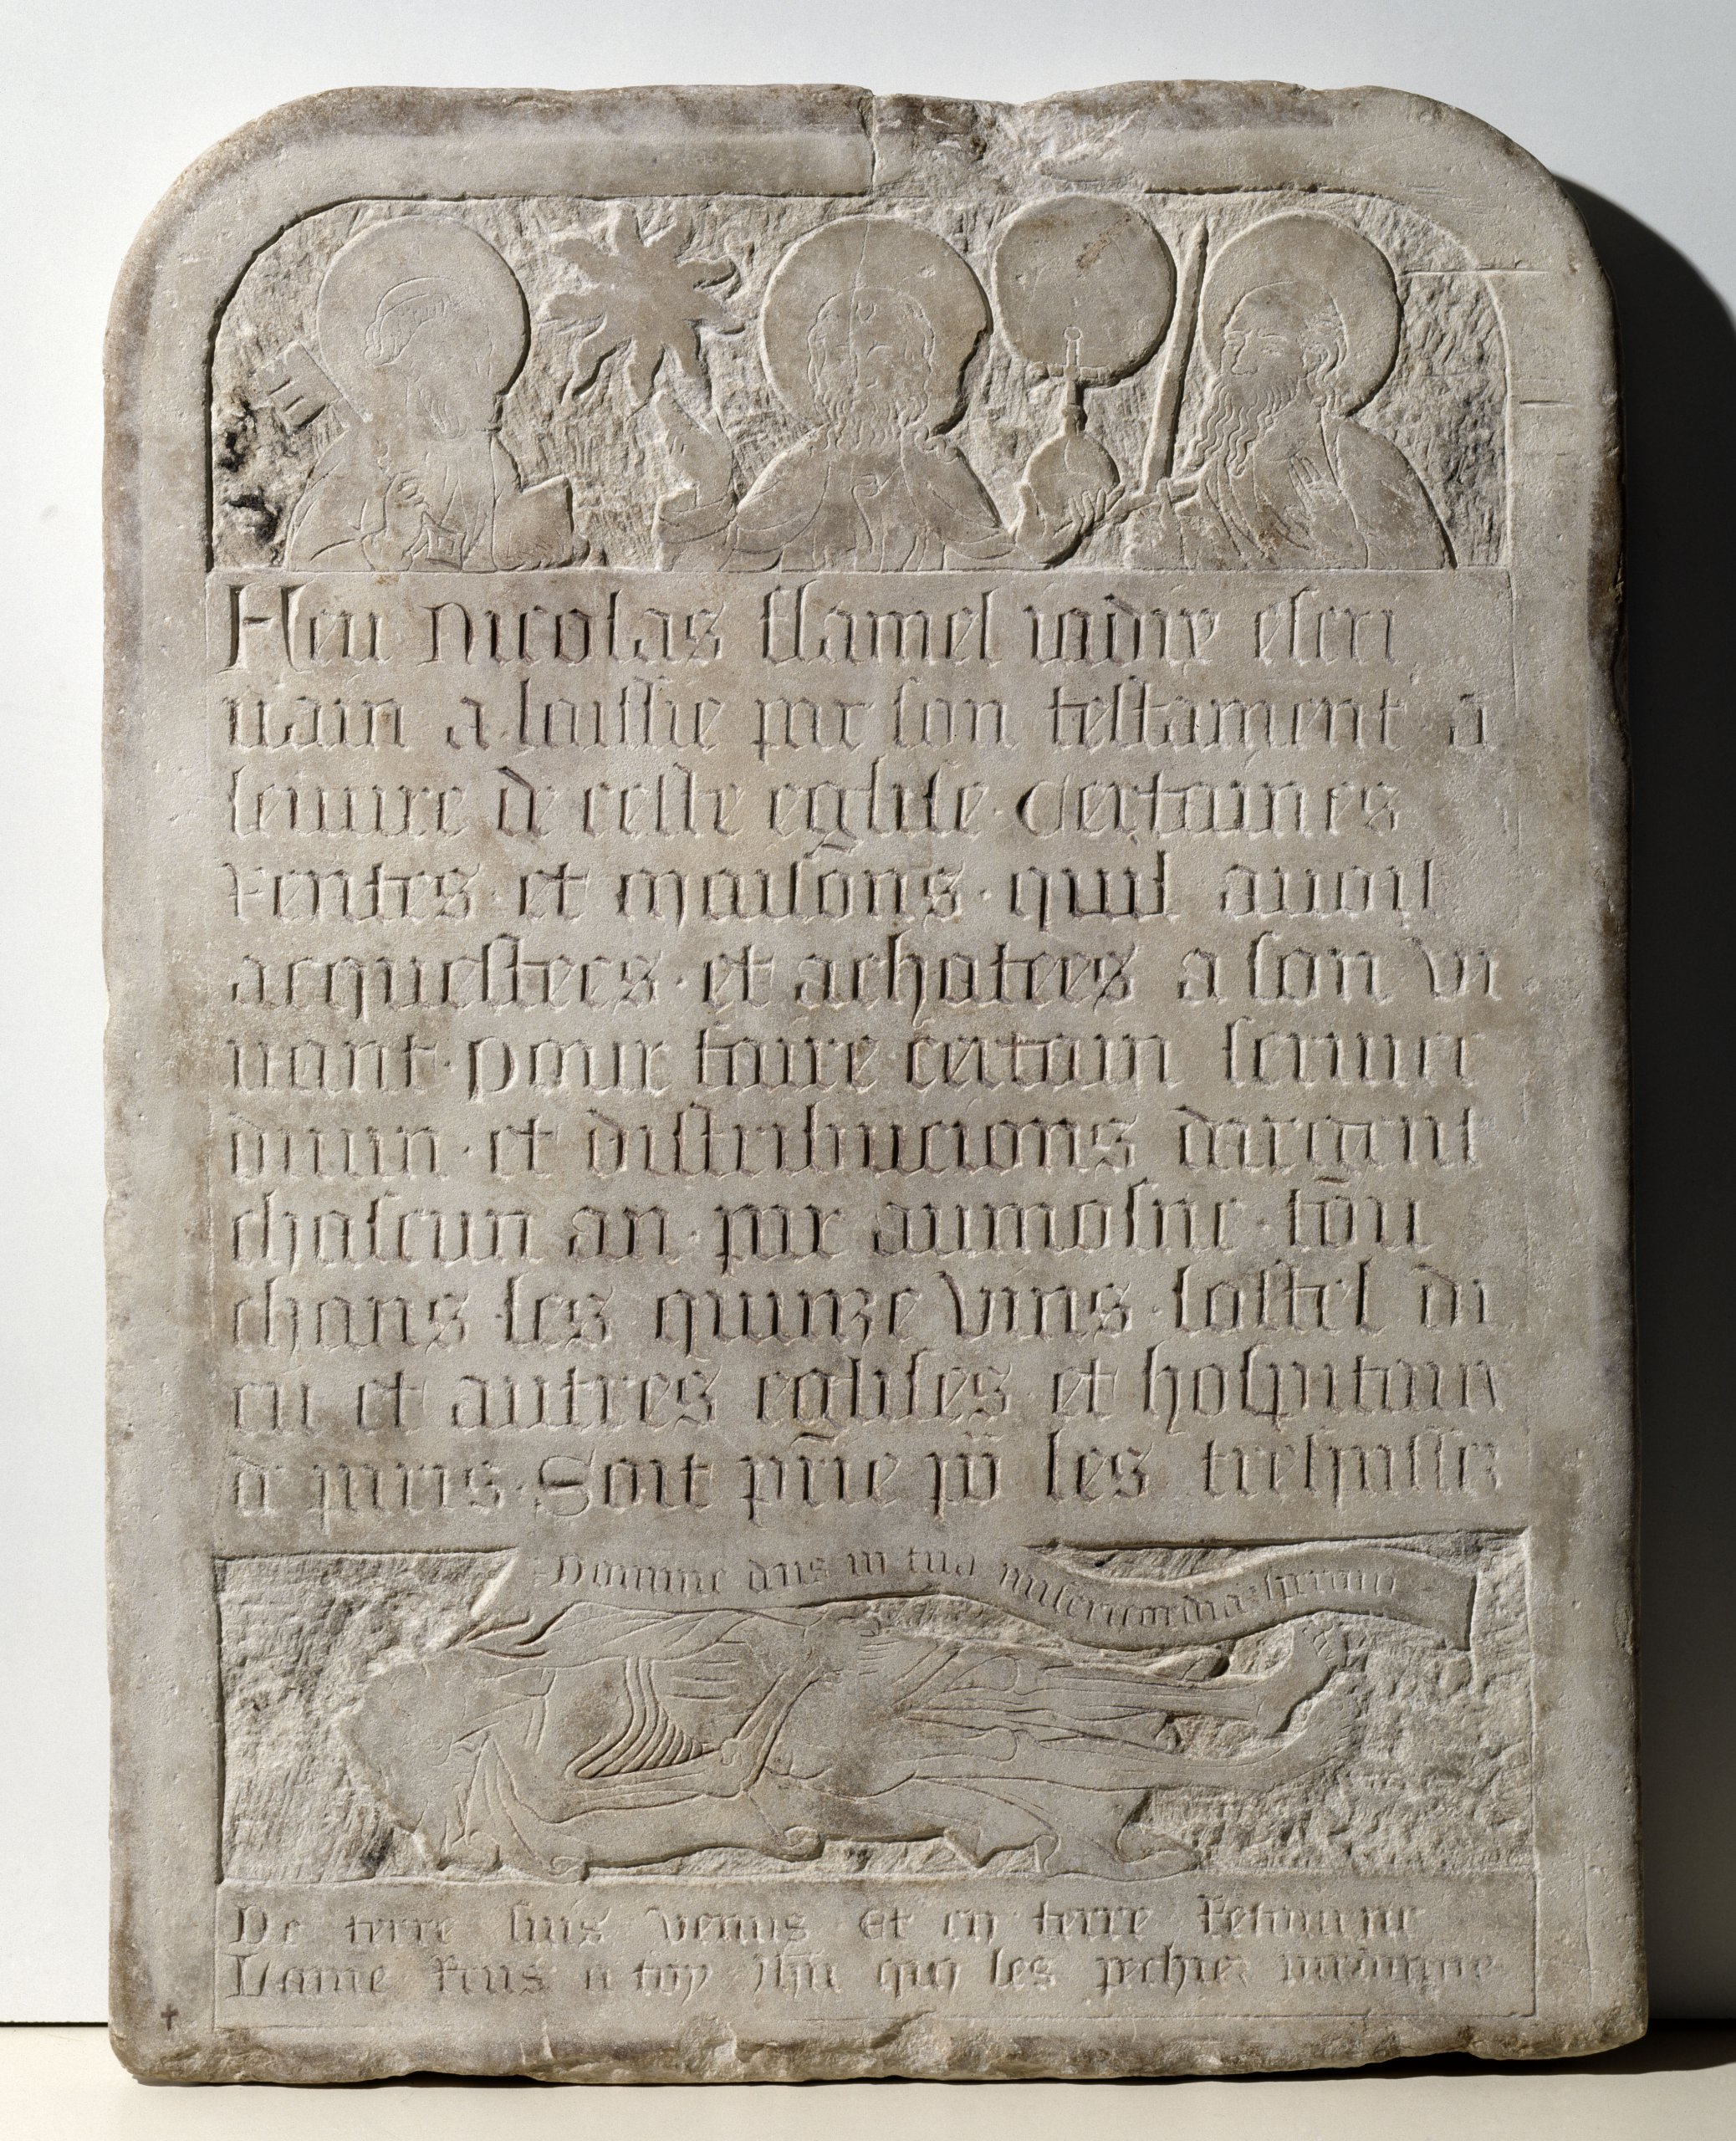 Feu nicolas flamel iadix escri
uain a laissie par son testament a
leuure de ceste eglise · Certaines
rentes · et maisons · quil auoit
acquestees · et achatees a son vi
uant · pour faire certain seruice
diuin · et distribucions dargent
chascun an · par aumosne · tou
chans · les quinze vins · lostel di
eu et autres eglises · et hospitaux
de paris · Soit prie po les trespassez
Domine deus in tua misericordia speraui
De terre suis venus Et en terre Retourne
Lame Rens a toy Jhu qui les pechiez pardonne